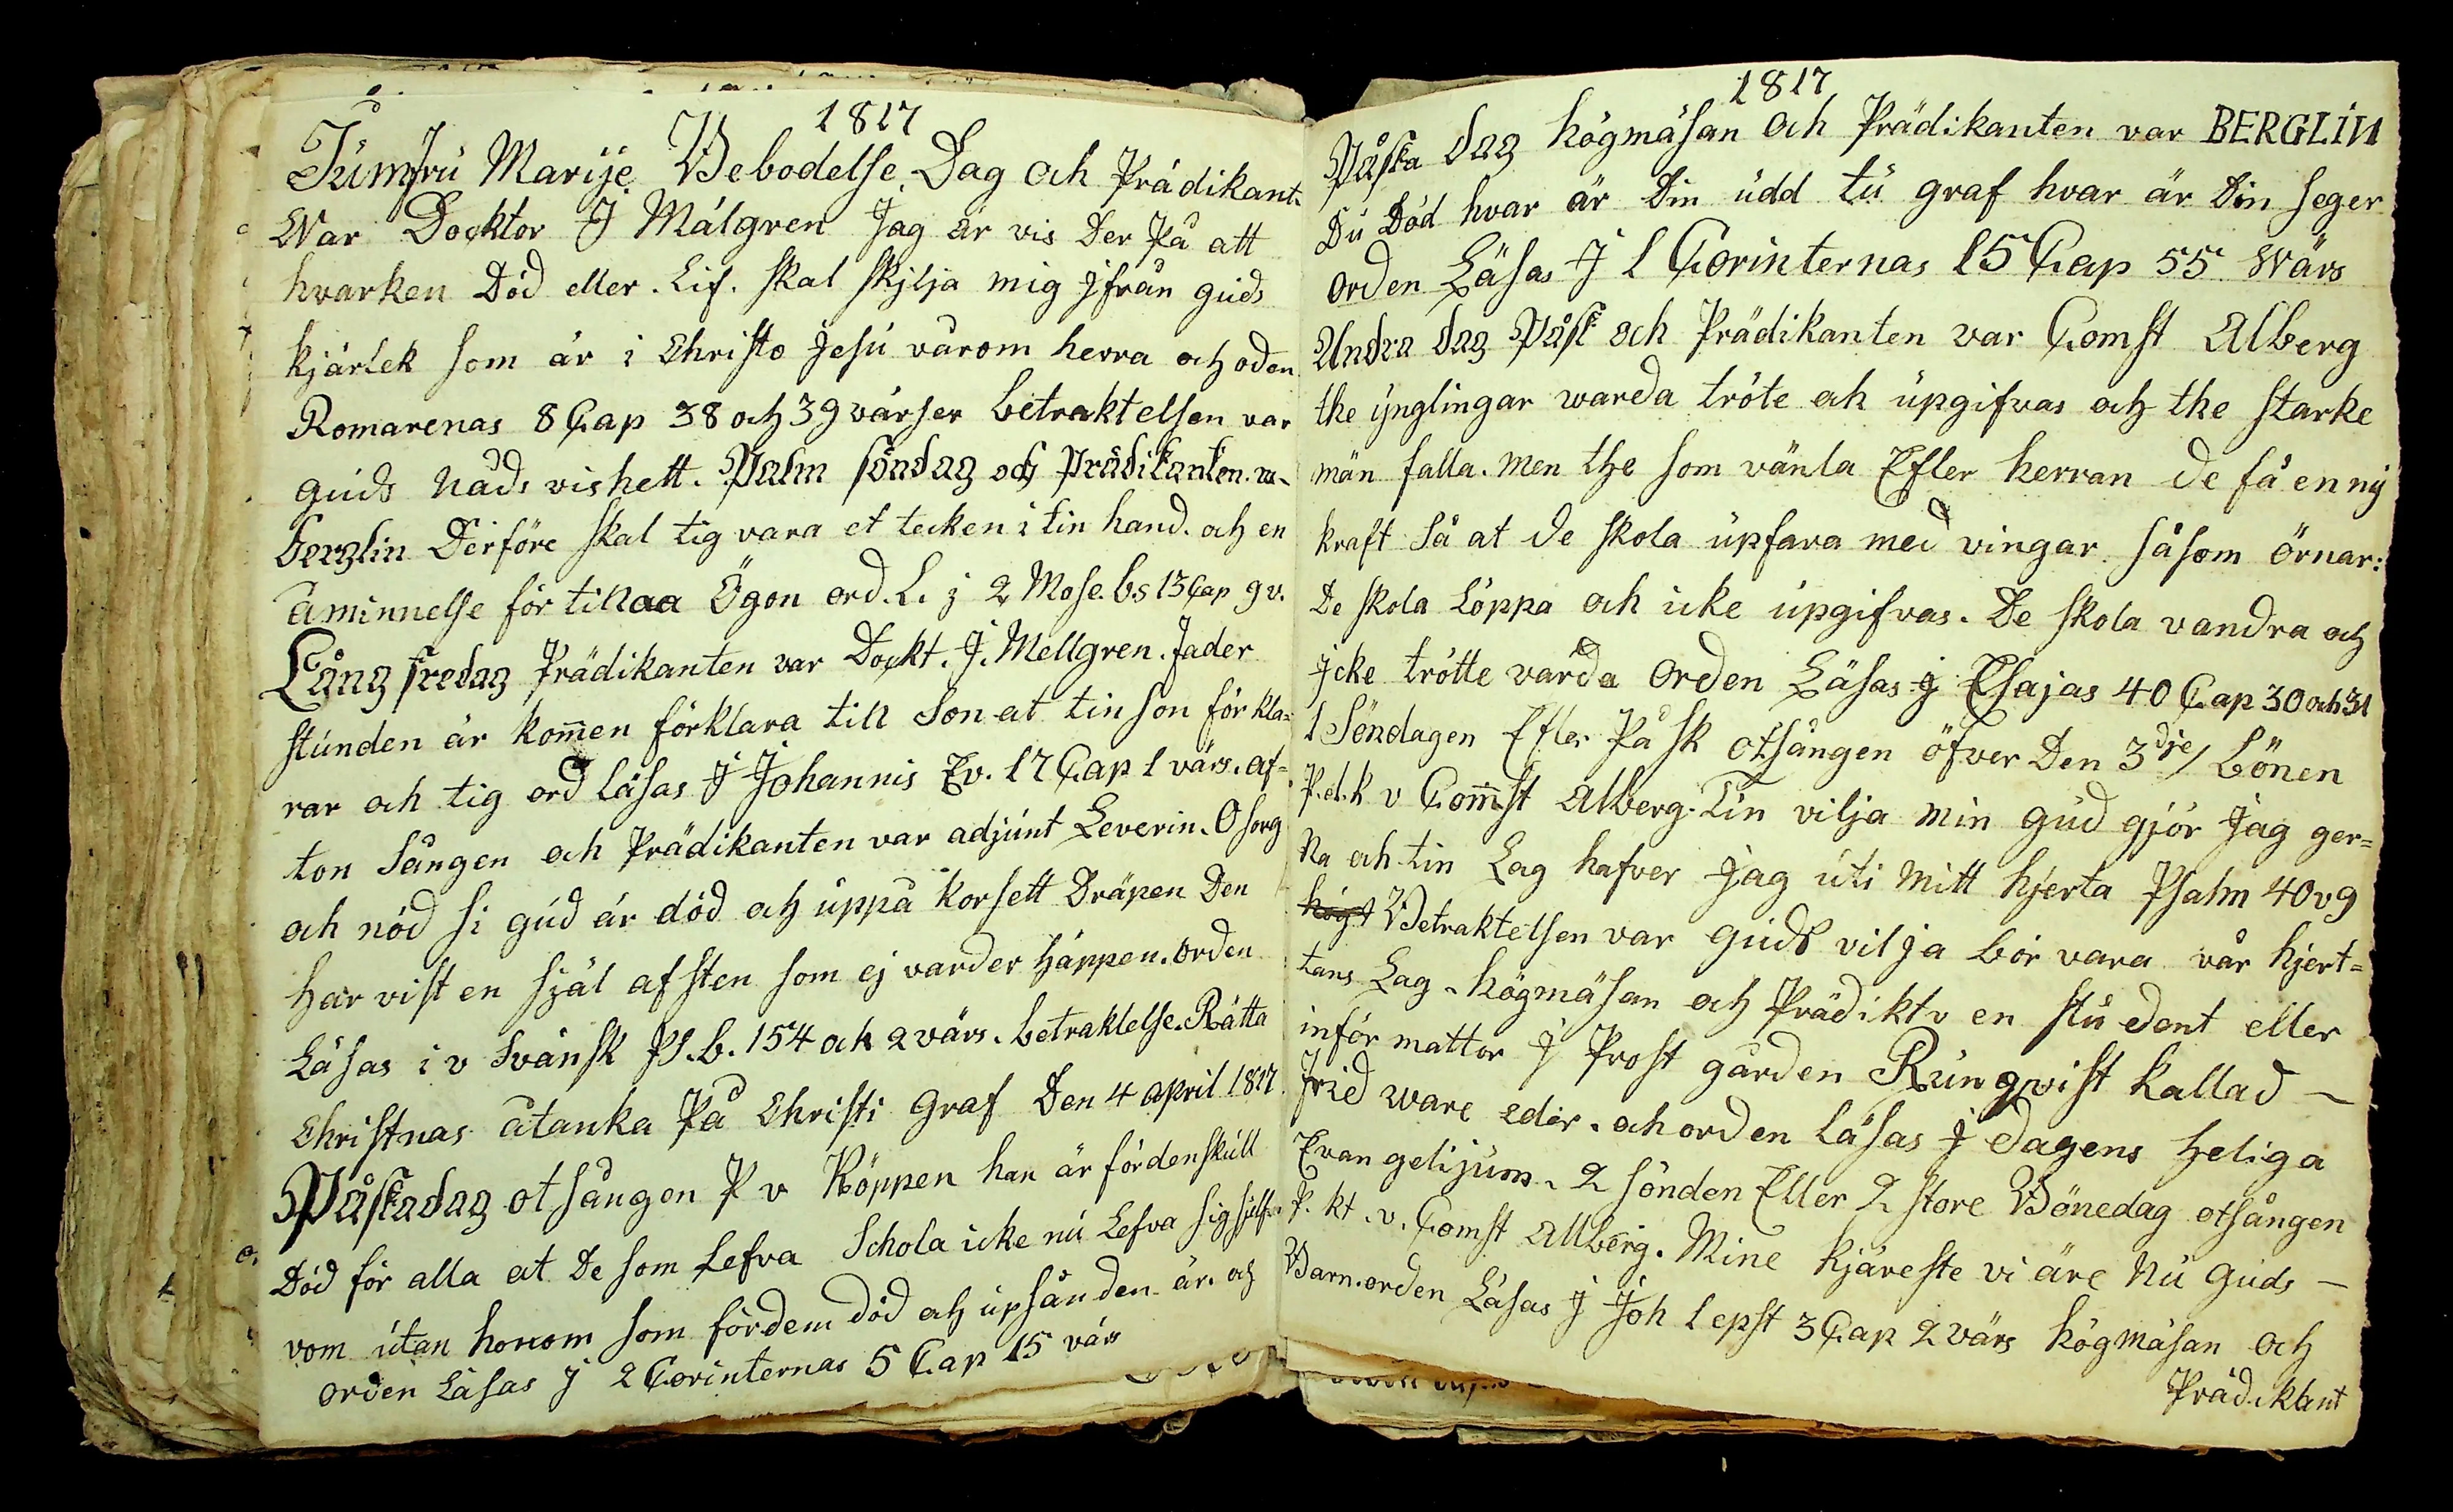 1817
Jumfru Marije Bebodelse Dag och Prädikant
War Docktor J Málgren Jag är vis Der På att
hvarken Död eller. Lif. skal skjlja mig jfrån guds
kjärlek som är i Christo Jesu vårom herra och oden
Romarenas 8 Cap 38 och 39 värser betraktelsen var
guds nåds vishett. Palm söndag och Prädikanten. va
berglin Derföre skal tig vara et tecken i tin hand. och en
åminnelse för tinaa Ögon ord. L. j 2 Mose. bs 13 Cap 9 v.
Lång fredag Prädikanten var Dockt. J. Mellgren. Fader
stunden är kom̄en förklara tin Son at tin son förkla=
rar och tig ord läsas J Johannis Ev. 17 Cap 1 värs. af=
ton Sången och Prädikanten var adjunt Leverin. O sorg
och nöd si gud är död och uppå korsett Dräpen Den
har vist en själ af sten som ej varder häppen. orden
Läsas i v Svänsk Ps. b. 154 och 2 värs. betraktelse. Rätta
Christnas åtanka På Christi graf Den 4 april 1817
Påskadag otsången P v Köppen han är fördenskull
Död för alla at De som Lefva Schola icke nu Lefva sig sjelf
vom utan honom som fördem död och upsånden är. och
orden Läsas j 2 Corinternas 5 Cap 15 värs
1817
Påska dag högmäsan och Prädikanten var BERGLIN
Du Död hvar är Din udd tu graf hvar är Din seger
orden Läsas J 1 Corinternas 15 Cap 55 Wärs
Andra dag Påsk och Prädikanten var Comst Alberg
the ynglingar warda tröte och upgifvas och the starke
män falla. men the som vänta Efter herran de få en ny
kraft Så at de skola upfara med vingar såsom örnar:
De skola Löppa och icke upgifvas. De skola vandra och
jcke trötte varda Orden Läsas j Esajas 40 Cap 30 och 31
1 Söndagen Efter Påsk otsången öfver Den 3dje/ Bönen
P.d.k v Com̄st Alberg. Tin vilja min gud gjör jag ger=
na och tin Lag hafver jag uti mitt hjerta Psalm 40 v 9
högt Betraktelsen var guds vilja bör vara vår hjert=
tans Lag. högmäsan och Prädikt v en student eller
informattor J Prost gården Rungqvist kallad –
Frid ware eder. och orden läsas J dagens heliga
Evangelijum. 2 sönden Eller 2 store Bönedag otsången
P. kt. v. Comst Allberg. Mine kjäreste vi äre nu guds –
Barn. orden Läsas J Joh 1 epst 3 Cap 2 värs högmäsan och
Prädikant